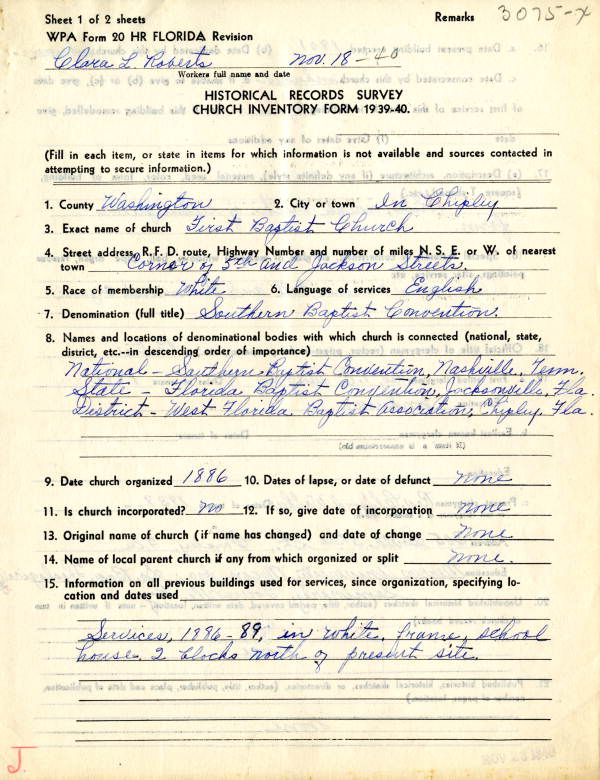 Sheet 1 of 2 sheets
Remarks 3075-X
WPA Form 20 HR FLORIDA Revision
Clara L. Roberts Nov. 18-40
Workers full name and date
HISTORICAL RECORDS SURVEY
CHURCH INVENTORY FORM 1939-40.
(Fill in each item, or state in items for which information is not available and sources contacted in
attempting to secure information.)
1. County Washington 2. City or town In Chipley
3. Exact name of church First Baptist Church
4. Street address, R. F. D. route, Highway Number and number of miles N. S. E. or W. of nearest
town Corner of 5th and Jackson Streets.
5. Race of membership White 6. Language of services English
7. Denomination (full title) Southern Baptist Convention.
8. Names and locations of denominational bodies with which church is connected (national, state,
district, etc.--in descending order of importance)
National - Southern Baptist Convention, Nashville, Tenn.
State - Florida Baptist Convention, Jacksonville, Fla.
District - West Florida Baptist Association, Chipley, Fla.
9. Date church organized 1886 10. Dates of lapse, or date of defunct None
11. Is church incorporated? No 12. If so, give date of incorporation None
13. Original name of church (if name has changed) and date of change None
14. Name of local parent church if any from which organized or split None
15. Information on all previous buildings used for services, since organization, specifying lo-
cation and dates used
Services, 1886-89, in white, frame, school
house 2 blocks north of present site.
J.